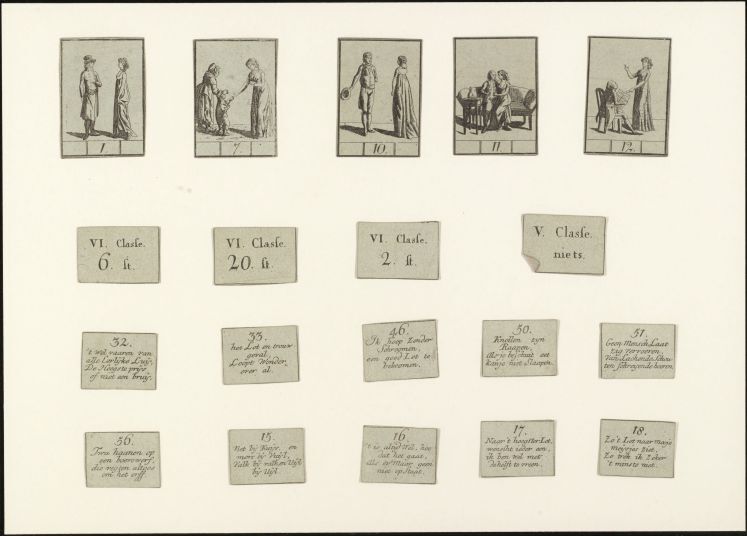 1.
7.
10.
11.
12.
VI. Classe.
6. st.
VI. Classe.
20. st.
VI. Classe.
2. st.
V. Classe.
niets.
32.
't Wel vaaren van
alle Eerlijke Luij,
De Hoogste prijs
of niet een bruij.
33.
het Lot en trouw
geral,
Loopt Wonder
over al.
46.
Ik hoop Zonder
Schroomen,
een goed Lot te
bekoomen.
50.
Knollen zyn
Raapen,
Als je beschuit eet
kan je niet Slaapen.
51.
Geen Mensch Laat
zig
ten schreijende hooren
56.
Twee haanen op
een boerewerf,
die vegten altyd
om het erff.
15.
Bet by Kees, en
by
Valk by valk en Uyl
by Uyl.
16.
't is altyd Wel, hoe
dat het gaat,
Als er Maar geen
niet op Staat.
17.
Naar't hoogste Lot,
wenscht ieder een,
ik ben wel met
de helft te vreen.
18.
Zo't Lot naar mooje
meysjes Ziet,
Zo trek ik Zeker
't minste niet.